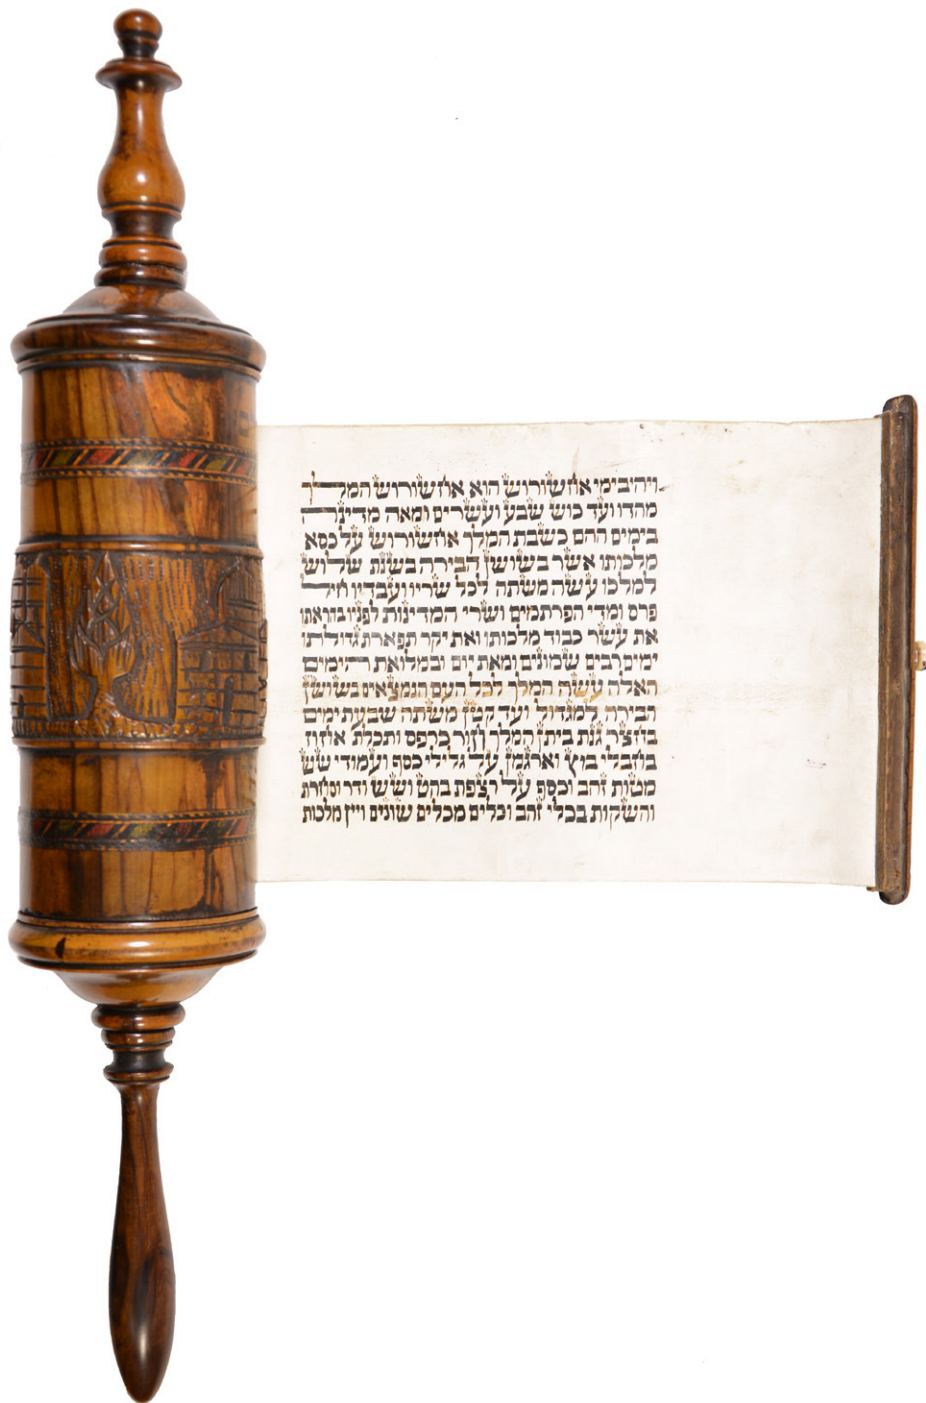 ויהי בימי אחשורוש הוא אחשורוש המלך
מהדו ועד כוש שבע ועשרים ומאה מדינה
בימים ההם כשבת המלך אחשורוש על כסא
מלכותו אשר בשושן הבירה בשנת שלוש
למלכו עשה משתה לכל שריו ועבדיו חיל
פרס ומדי הפרתמים ושרי המדינות לפניו בהראתו
את עשר כבוד מלכותו ואת יקר תפארת גדולתו
ימים רבים שמונים ומאת יום ובמלואת הימים
האלה עשה המלך לכל העם הנמצאים בשושן
הבירה למגדול ועד קטן משתה שבעת ימים
בחצר גנת ביתן המלך חור כרפס ותכלת אחוז
בחבלי בוץ וארגמן על גלילי כסף ועמודי שש
מטות זהב וכסף על רצפת בהט ושש ודר וסחרת
והשקות בכלי זהב וכלים מכלים שונים ויין מלכות